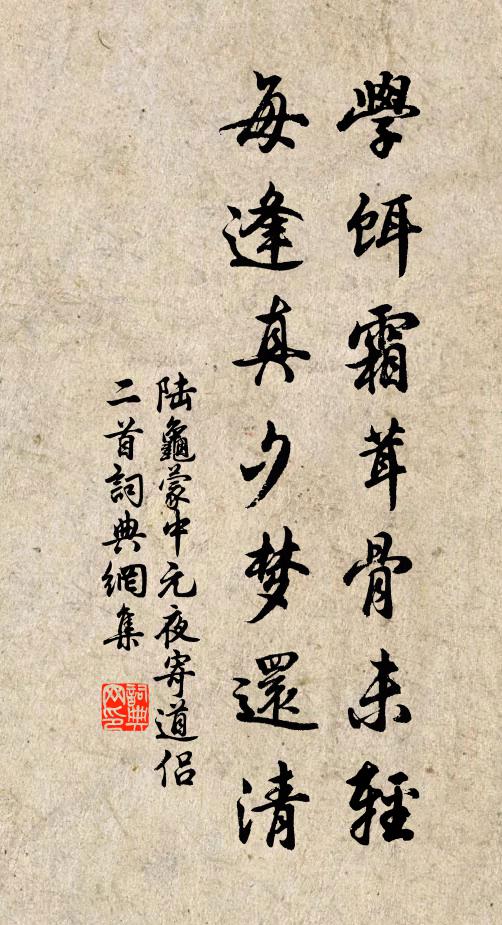 學餌霜茸骨未輕
每逢真夕梦還清
陆龜蒙中元夜寄道侣
二首詞典網集
詞典
网印